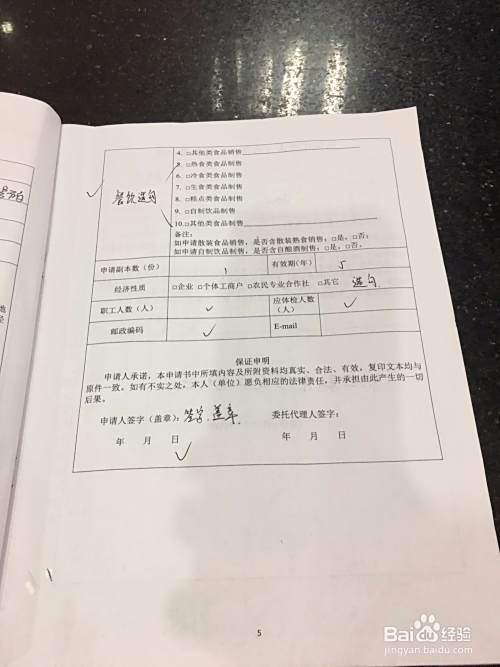 4. □其他类食品销售
5. □热食类食品制售
6. □冷食类食品制售
7. □生食类食品制售
8. □糕点类食品制售
9. □自制饮品制售
10.□其他类食品制售
餐饮选勾
备注:
如申请散装食品销售,是否含散装熟食销售:□是,□否;
如申请自制饮品制售,是否含自酿酒制售:□是,□否。
申请副本数(份) 1 有效期(年) 5
经济性质 □企业 □个体工商户 □农民专业合作社 □其它 选勾
职工人数(人) ✓ 应体检人数(人) ✓
邮政编码 ✓ E-mail
保证申明
申请人承诺,本申请书中所填内容及所附资料均真实、合法、有效,复印文本均与
原件一致。如有不实之处,本人(单位)愿负相应的法律责任,并承担由此产生的一切
后果。
申请人签字(盖章):签字、盖章 委托代理人签字:
年 月 日 年 月 日
✓
5
Baidu经验
jingyan.baidu.com